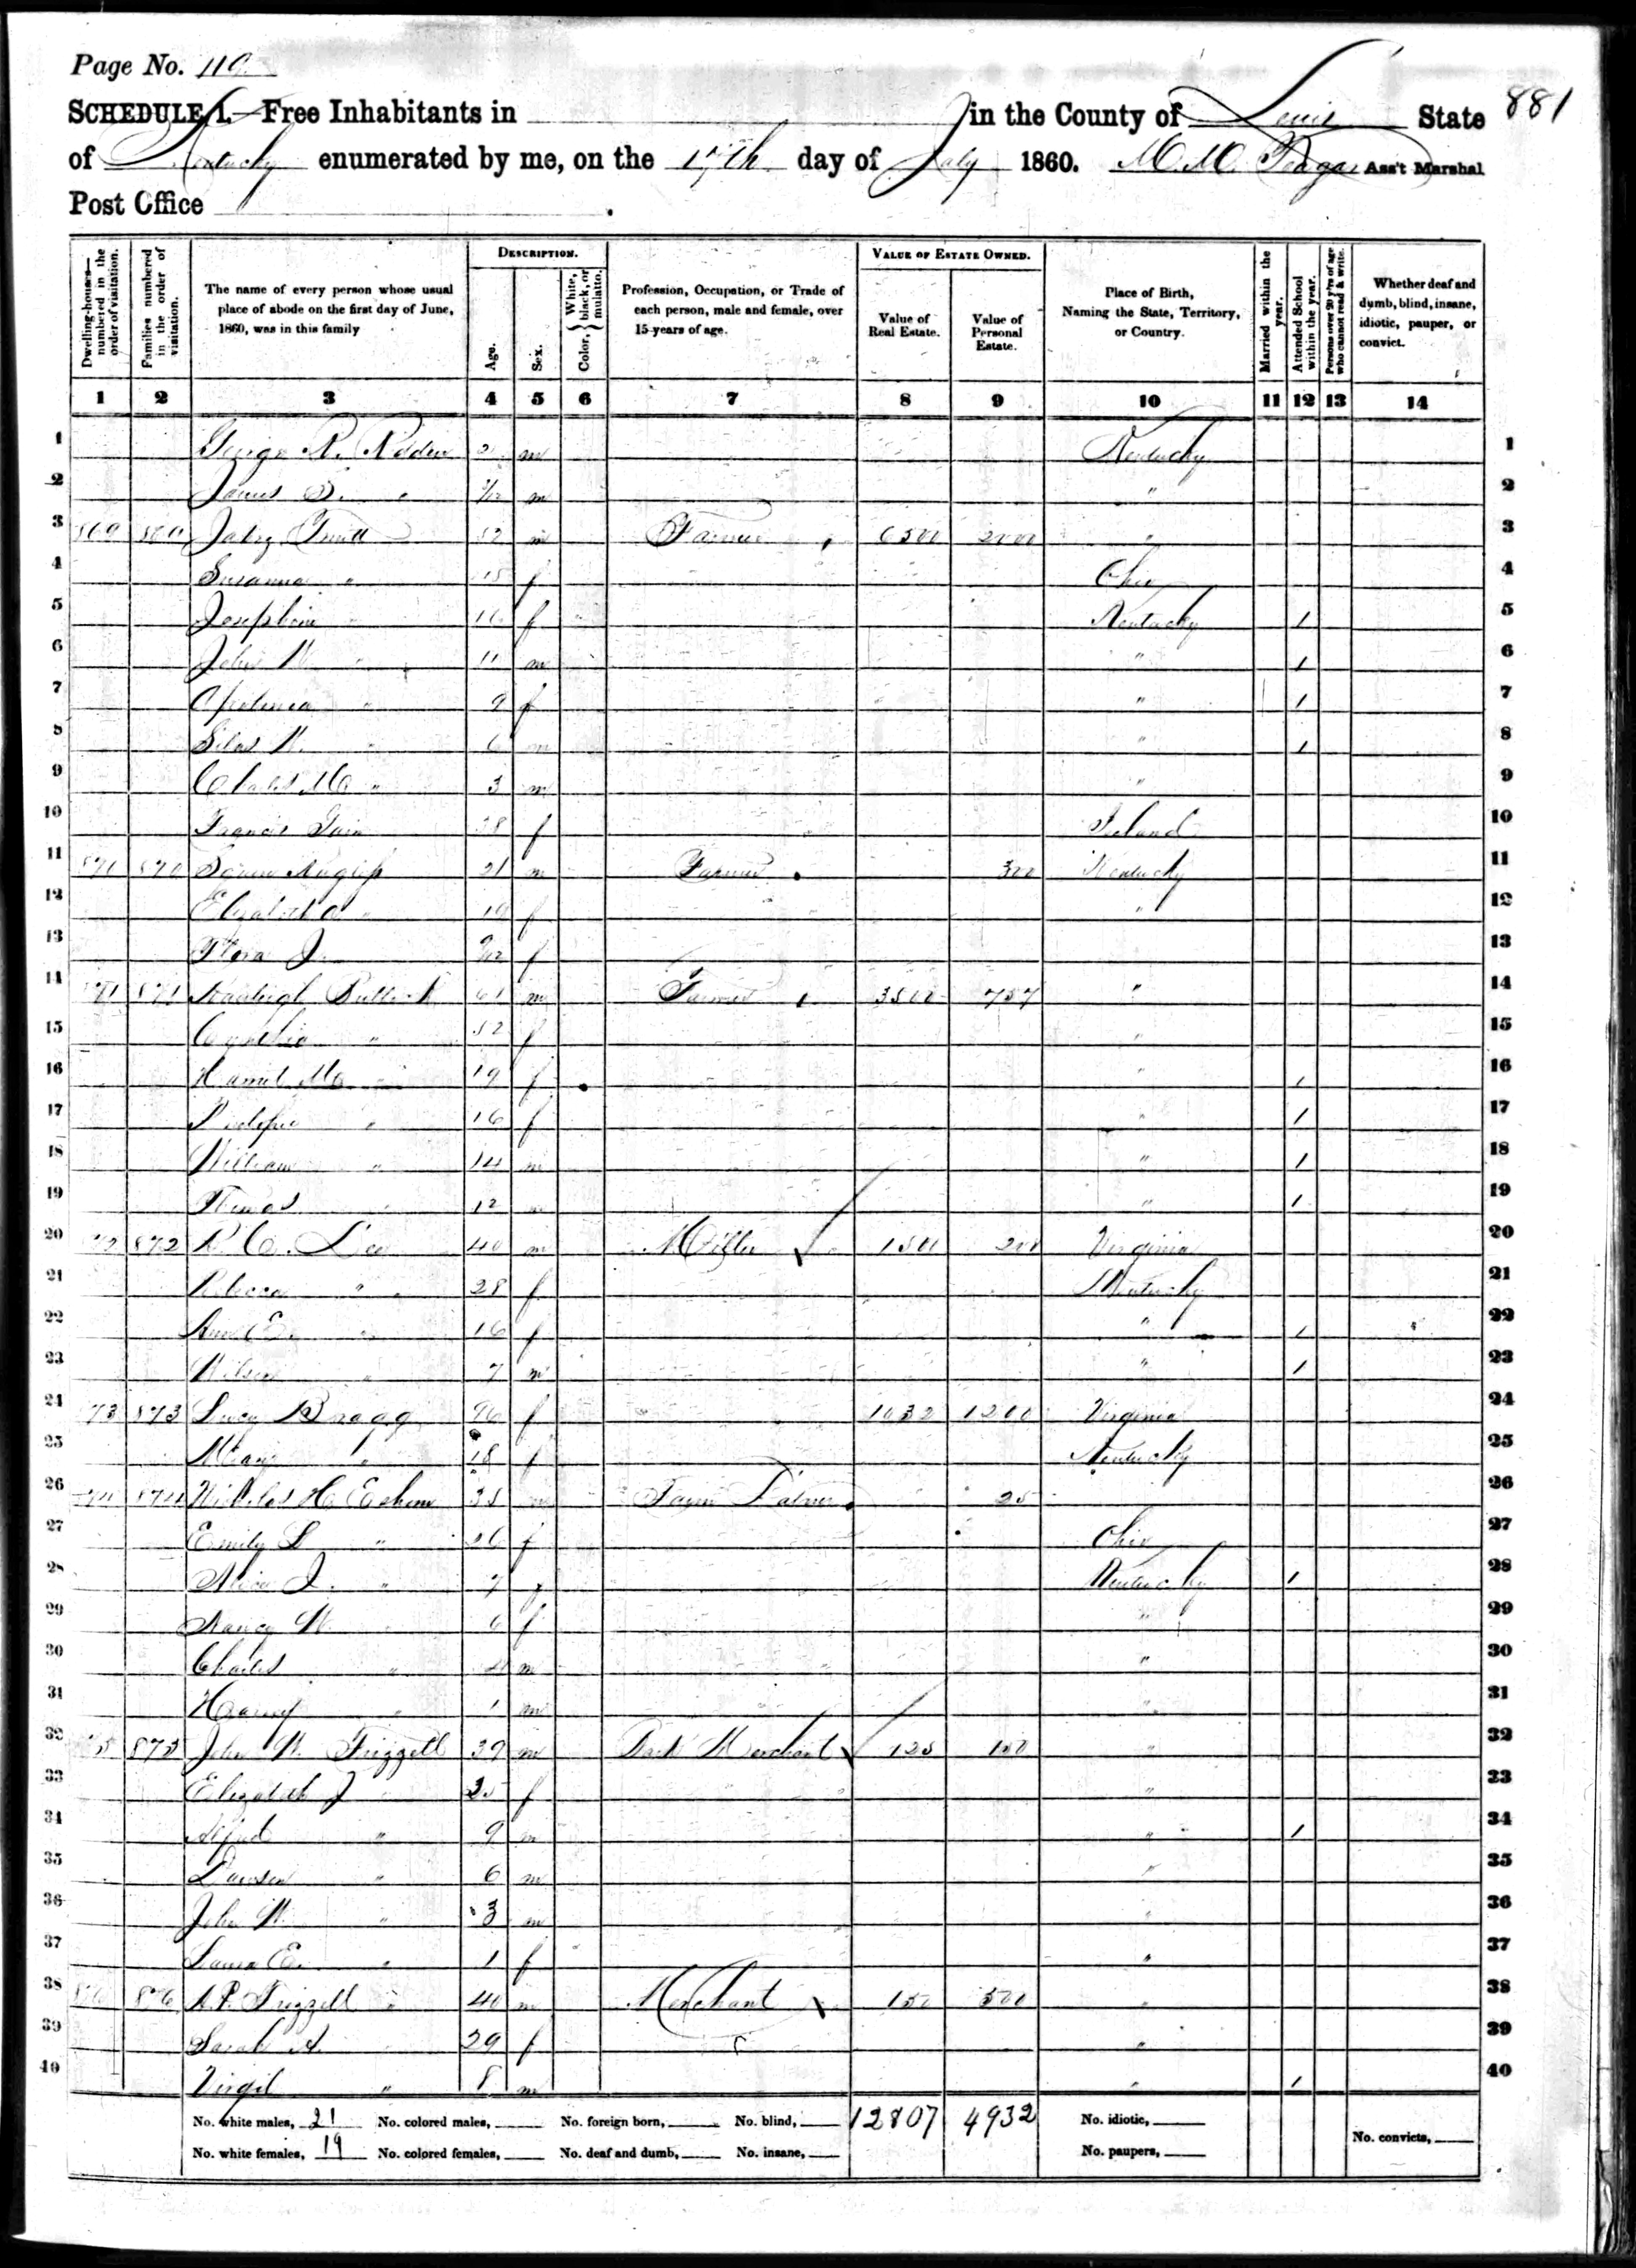 Page No. 119
881
SCHEDULE 1.—Free Inhabitants in in the County of Lewis State
of Kentucky enumerated by me, on the 17th day of July 1860. M. M. Teagar Ass't Marshal
Post Office .
Dwelling-houses—numbered in the order of visitation.
Families numbered in the order of visitation.
The name of every person whose usual place of abode on the first day of June, 1860, was in this family
DESCRIPTION.
Age.
Sex.
Color, { White, black, or mulatto.
Profession, Occupation, or Trade of each person, male and female, over 15 years of age.
VALUE OF ESTATE OWNED.
Value of Real Estate.
Value of Personal Estate.
Place of Birth, Naming the State, Territory, or Country.
Married within the year.
Attended School within the year.
Persons over 20 y'rs of age who cannot read & write.
Whether deaf and dumb, blind, insane, idiotic, pauper, or convict.
1 2 3 4 5 6 7 8 9 10 11 12 13 14
1 George R. 2 m Kentucky 1
2 James /12 m " 2
3 869 869 Jabez Truitt 52 m Farmer 6500 2000 " 3
4 Susanna " f Ohio 4
5 Josephine " 16 f Kentucky 1 5
6 John W " 11 m " 1 6
7 " 9 f " 1 7
8 Silas W. " 6 m " 1 8
9 Charles M " 3 m " 9
10 Francis f Ireland 10
11 870 870 21 m Farmer 300 Kentucky 11
12 Elizabeth A " 19 f " 12
13 Flora J. 9/12 f 13
14 871 871 Rawleigh Bullock 61 m Farmer 3500 757 " 14
15 " 52 f " 15
16 M " 19 f " 1 16
17 " 16 f " 1 17
18 William " 14 m " 1 18
19 Thomas 12 m " 1 19
20 872 872 R. C. Lee 40 m Miller 1500 200 Virginia 20
21 Rebecca " 28 f Kentucky 21
22 Ann E. " 16 f " 1 22
23 Wilson " 7 m " 1 23
24 873 873 Lucy Bragg 76 f 1032 1200 Virginia 24
25 Mary " 18 f Kentucky 25
26 874 874 Nicholas H. 35 m Farm Laborer 25 26
27 Emily S " 26 f Ohio 27
28 Alice J. " 7 f Kentucky 1 28
29 Nancy W. 6 f " 29
30 Charles " 4 m " 30
31 Harvey " 1 m " 31
32 875 875 John W. Frizzell 39 m Merchant 125 150 " 32
33 Elizabeth J " 25 f " 33
34 Alfred " 9 m " 1 34
35 Dawson " 6 m " 35
36 John W. " 3 m " 36
37 Laura E. " 1 f " 37
38 876 876 A. P. Frizzell " 40 m Merchant 150 500 " 38
39 Sarah A. 29 f " 39
40 Virgil " 8 m " 1 40
No. white males, 21 No. colored males, No. foreign born, No. blind, 12807 4932 No. idiotic,
No. white females, 19 No. colored females, No. deaf and dumb, No. insane, No. paupers, No. convicts,